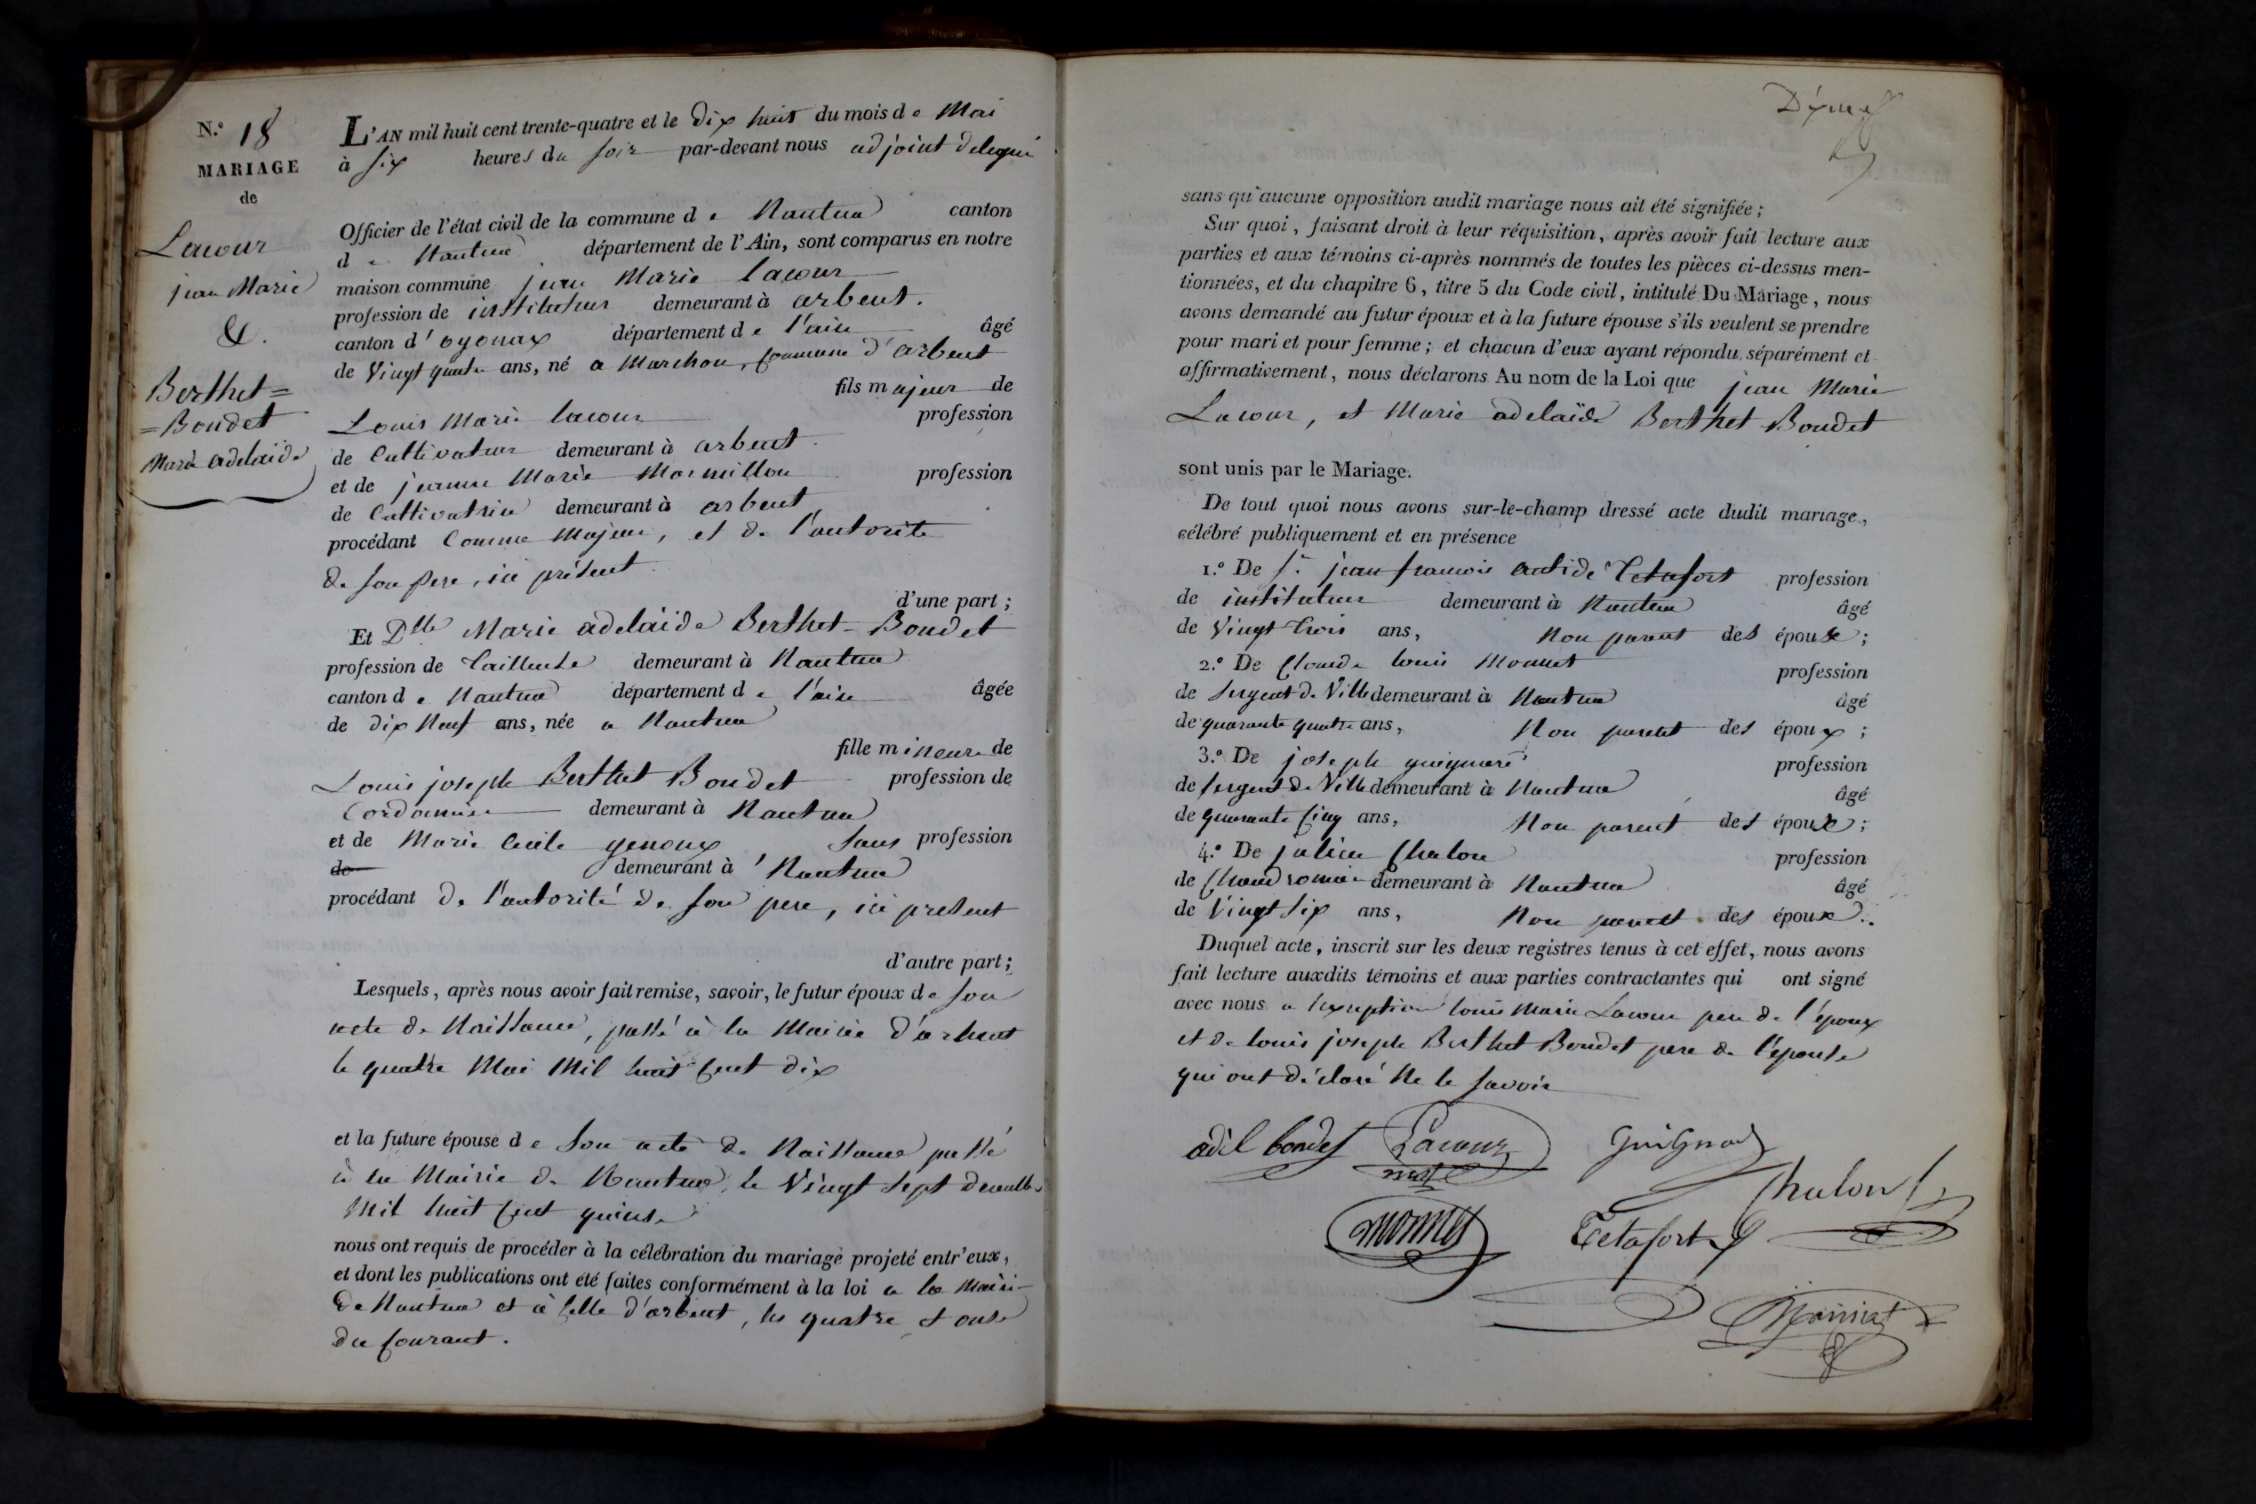 N.º 18
MARIAGE
de
Lacour
jean Marie
&.
Berthet=
=Boudet
Marie adelaïde
L'AN mil huit cent trente-quatre et le dix huit du mois de Mai
à six heures du soir par-devant nous adjoint delegué
Officier de l'état civil de la commune de Nantua canton
de Nantua département de l'Ain, sont comparus en notre
maison commune jean Marie Lacour
profession de instituteur demeurant à arbent.
canton d'oyonax département de l'ain âgé
de Vingt quatre ans, né a Marchon, commune d'arbent
fils majeur de
Louis Marie lacour profession
de Cultivateur demeurant à arbent.
et de jeanne Marie Marmillon profession
de Cultivatrice demeurant à arbent
procédant Comme Majeur, et de l'autorite
de son pere, ici présent
d'une part ;
Et Dlle Marie adelaïde Berthet-Boudet
profession de tailleuse demeurant à Nantua
canton de Nantua département de l'ain âgée
de dix Neuf ans, née a Nantua
fille mineure de
Louis joseph Berthet Boudet profession de
Cordonnier demeurant à Nantua
et de Marie Cecile genoux, sans profession
de demeurant à Nantua
procédant de l'autorité de son pere, ici present
d'autre part ;
Lesquels, après nous avoir fait remise, savoir, le futur époux de son
acte de Naissance, passé à la Mairie d'arbent
le quatre Mai Mil huit Cent dix
et la future épouse de son acte de Naissance passé
à la Mairie de Nantua, le Vingt sept
Mil huit Cent quinze
nous ont requis de procéder à la célébration du mariage projeté entr'eux,
et dont les publications ont été faites conformément à la loi a la Mairie
de Nantua et à Celle d'arbent, les quatre et onze
du Courant.
sans qu'aucune opposition audit mariage nous ait été signifiée ;
Sur quoi, faisant droit à leur réquisition, après avoir fait lecture aux
parties et aux témoins ci-après nommés de toutes les pièces ci-dessus men-
tionnées, et du chapitre 6, titre 5 du Code civil, intitulé Du Mariage, nous
avons demandé au futur époux et à la future épouse s'ils veulent se prendre
pour mari et pour femme ; et chacun d'eux ayant répondu séparément et
affirmativement, nous déclarons Au nom de la Loi que jean Marie
Lacour, et Marie adelaïde Berthet Boudet
sont unis par le Mariage.
De tout quoi nous avons sur-le-champ dressé acte dudit mariage,
célébré publiquement et en présence
1.º De Sr. jean francois antide Tetafort profession
de instituteur demeurant à Nantua âgé
de Vingt trois ans, Non parent des époux ;
2.º De Claude louis Monnet profession
de sergent de Ville demeurant à Nantua âgé
de quarante quatre ans, Non parent des époux ;
3.º De joseph profession
de sergent de Ville demeurant à Nantua âgé
de quarante Cinq ans, Non parent des époux ;
4.º De julien Chalon profession
de Chaudronnier demeurant à Nantua âgé
de Vingt six ans, Non parent des époux.
Duquel acte, inscrit sur les deux registres tenus à cet effet, nous avons
fait lecture auxdits témoins et aux parties contractantes qui ont signé
avec nous a l'exception louis Marie Lacour pere de l'époux
et de louis joseph Berthet Boudet pere de l'épouse
qui ont déclaré Ne le savoir
adel boudet Lacour Guignard
Chalon
monnet Tetafort